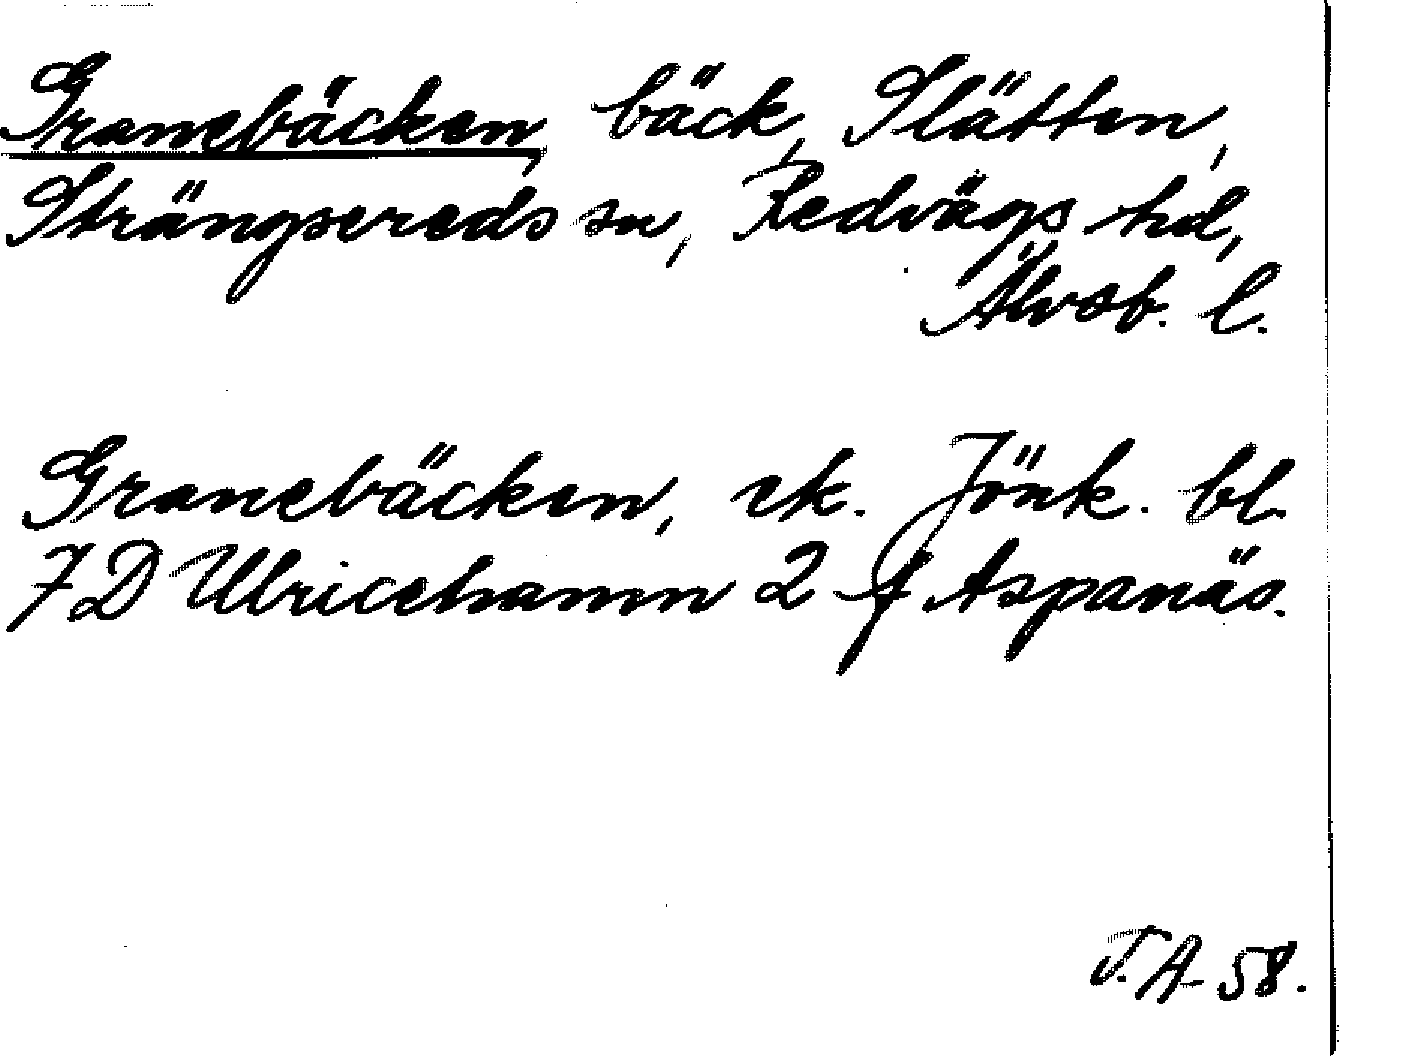 Granebäcken, bäck, Slätten,
Strängsereds sn, Redvägs hd,
Älvsb. l.
Granebäcken, ek. Jönk. bl.
7D Ulricehamn 2 f Aspanäs.
T.A. 58.